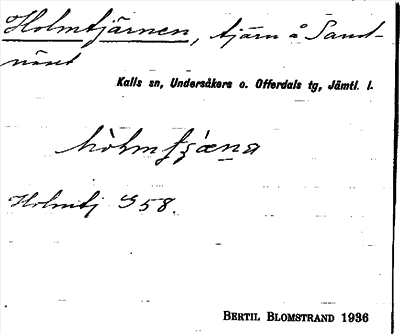 Holmtjärnen, tjärn å Sand-
näset
Kalls sn, Undersåkers o. Offerdals tg, Jämtl. l.
Holmtj S 58.
BERTIL BLOMSTRAND 1936